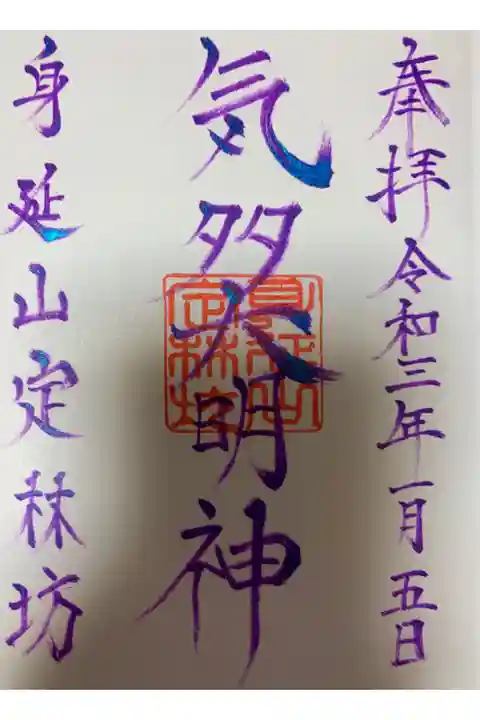 奉拝令和三年一月五日
気多大明神
身延山
定林坊
身延山定林坊